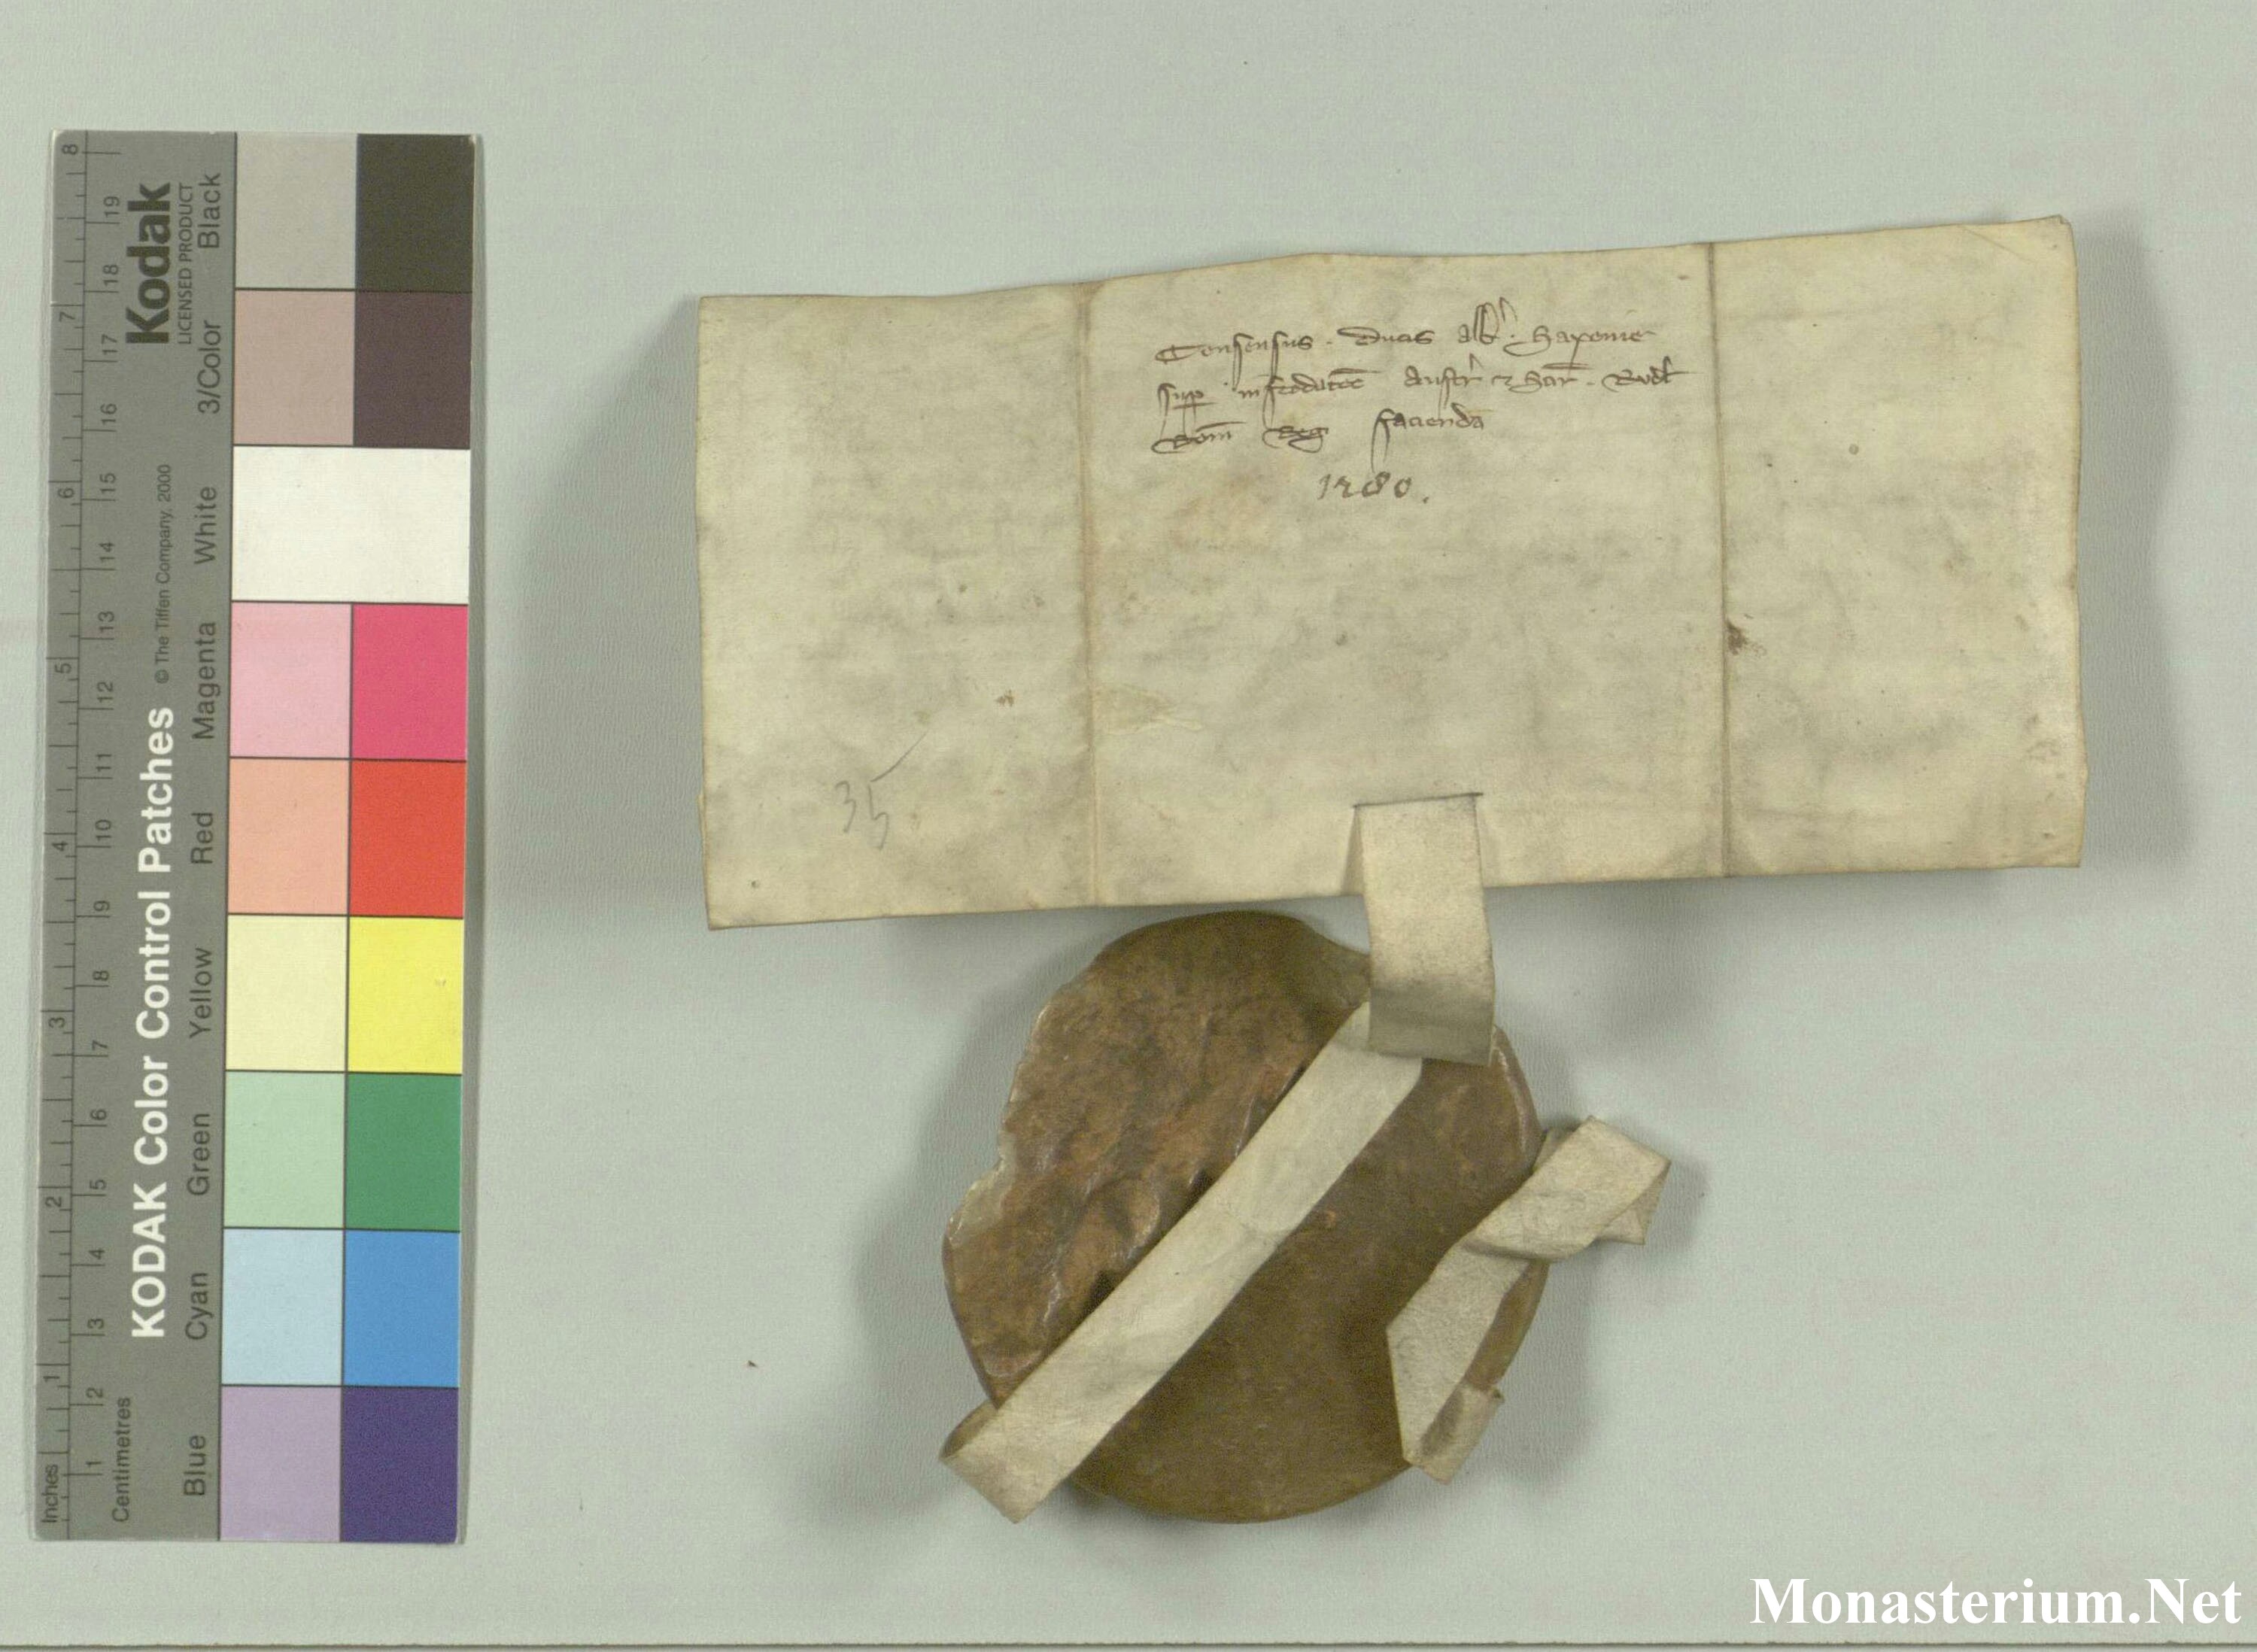 Consensus . ducis alb . Saxonie
sup infeodatoe Austr et Stir . Rudl
Rom Reg facienda
1280.
35
KODAK Color Control Patches
Kodak
LICENSED PRODUCT
© The Tiffen Company, 2000
Inches 1 2 3 4 5 6 7 8
Centimetres 1 2 3 4 5 6 7 8 9 10 11 12 13 14 15 16 17 18 19
Blue Cyan Green Yellow Red Magenta White 3/Color Black
Monasterium.Net